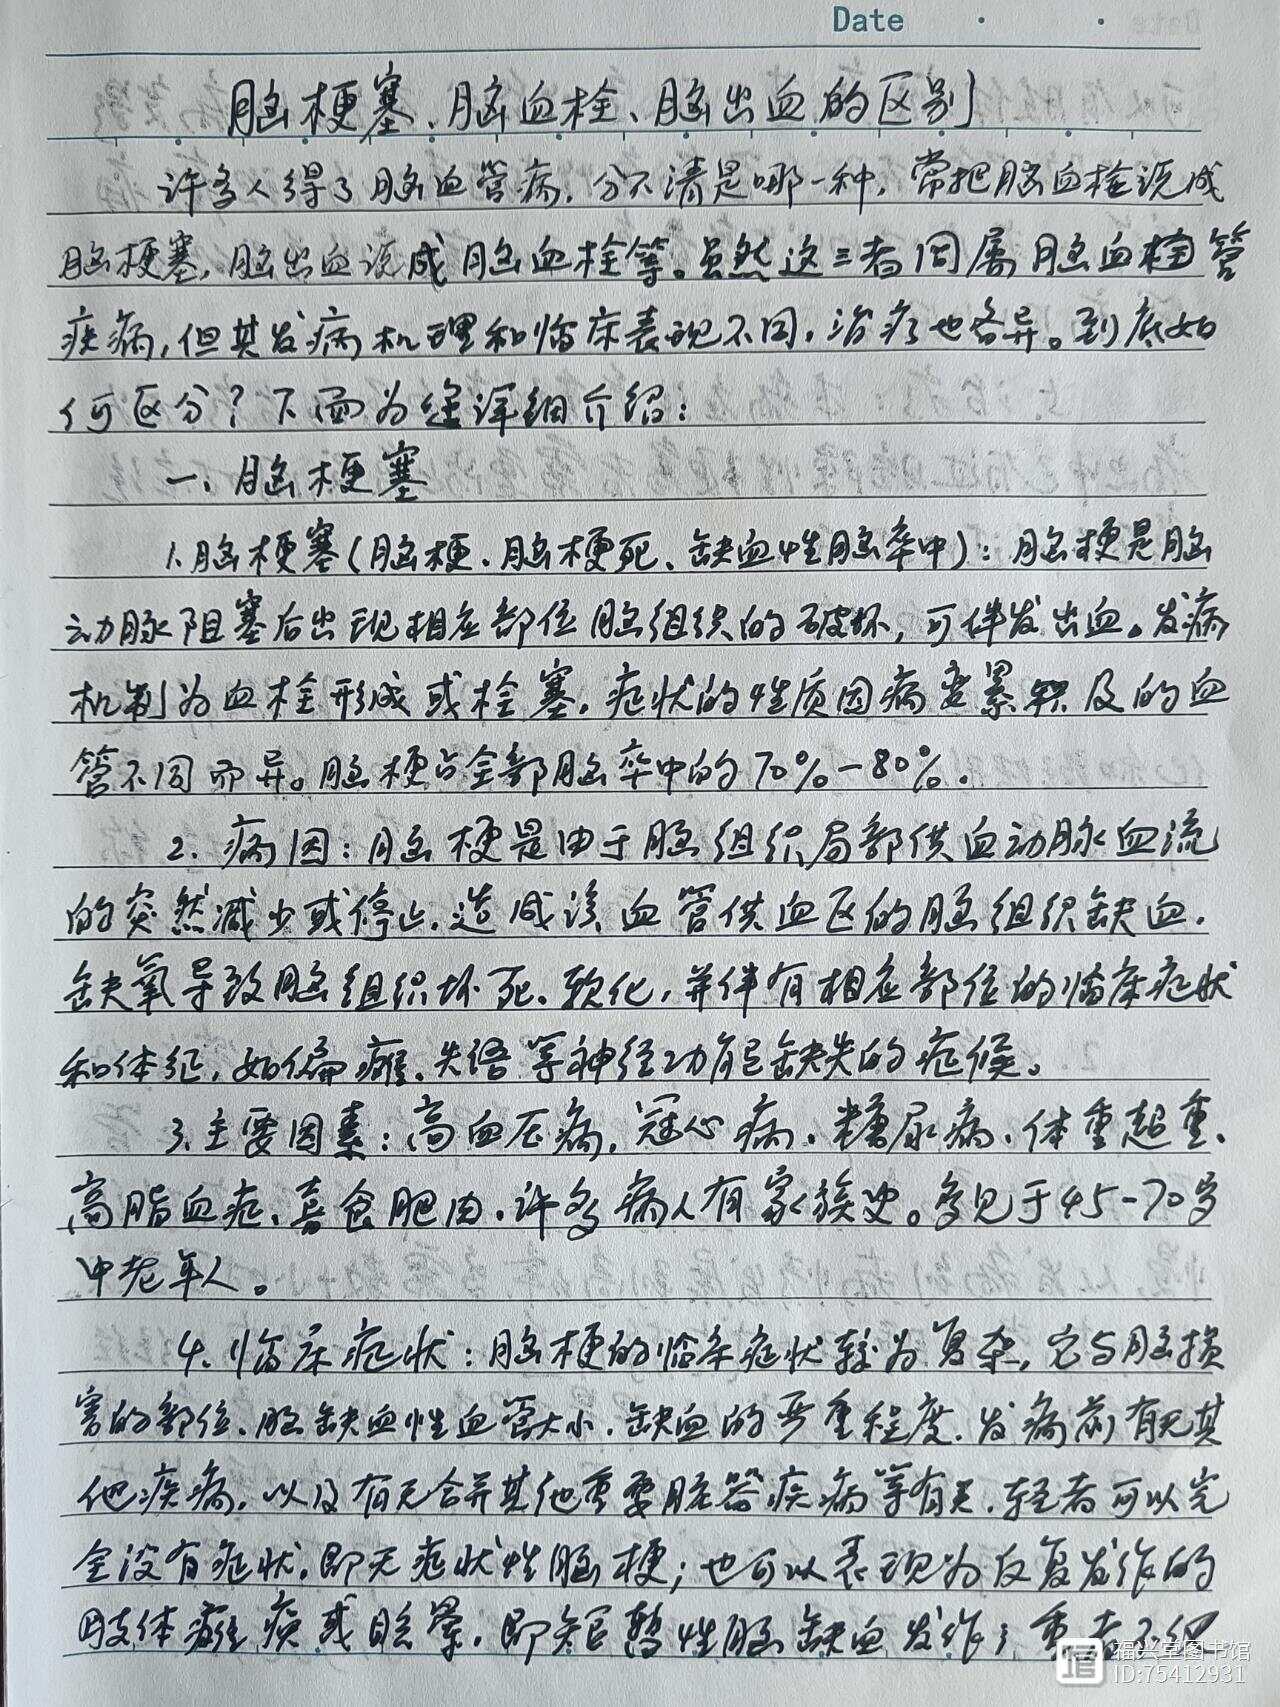 Date
脑梗塞、脑血栓、脑出血的区别
许多人得了脑血管病,分不清是哪一种,常把脑血栓说成
脑梗塞,脑出血说成脑血栓等。虽然这三者同属脑血管
疾病,但其发病机理和临床表现不同,治疗也各异。到底如
何区分?下面为您详细介绍:
一、脑梗塞
1.脑梗塞(脑梗、脑梗死、缺血性脑卒中):脑梗是脑
动脉阻塞后出现相应部位脑组织的破坏,可伴发出血。发病
机制为血栓形成或栓塞,症状的性质因病变累及的血
管不同而异。脑梗占全部脑卒中的70%-80%.
2.病因:脑梗是由于脑组织局部供血动脉血流
的突然减少或停止,造成该血管供血区的脑组织缺血、
缺氧导致脑组织坏死、软化,并伴有相应部位的临床症状
和体征,如偏瘫、失语等神经功能缺失的症候。
3.主要因素:高血压病,冠心病、糖尿病、体重超重、
高脂血症、喜食肥肉,许多病人有家族史。多见于45-70岁
中老年人。
4.临床症状:脑梗的临床症状较为复杂,它与脑损
害的部位、脑缺血性血管大小、缺血的严重程度、发病前有无其
他疾病,以及有无合并其他重要脏器疾病等有关,轻者可以完
全没有症状,即无症状性脑梗;也可以表现为反复发作的
肢体瘫痪或眩晕,即短暂性脑缺血发作;重者不仅
福兴堂图书馆
ID:75412931